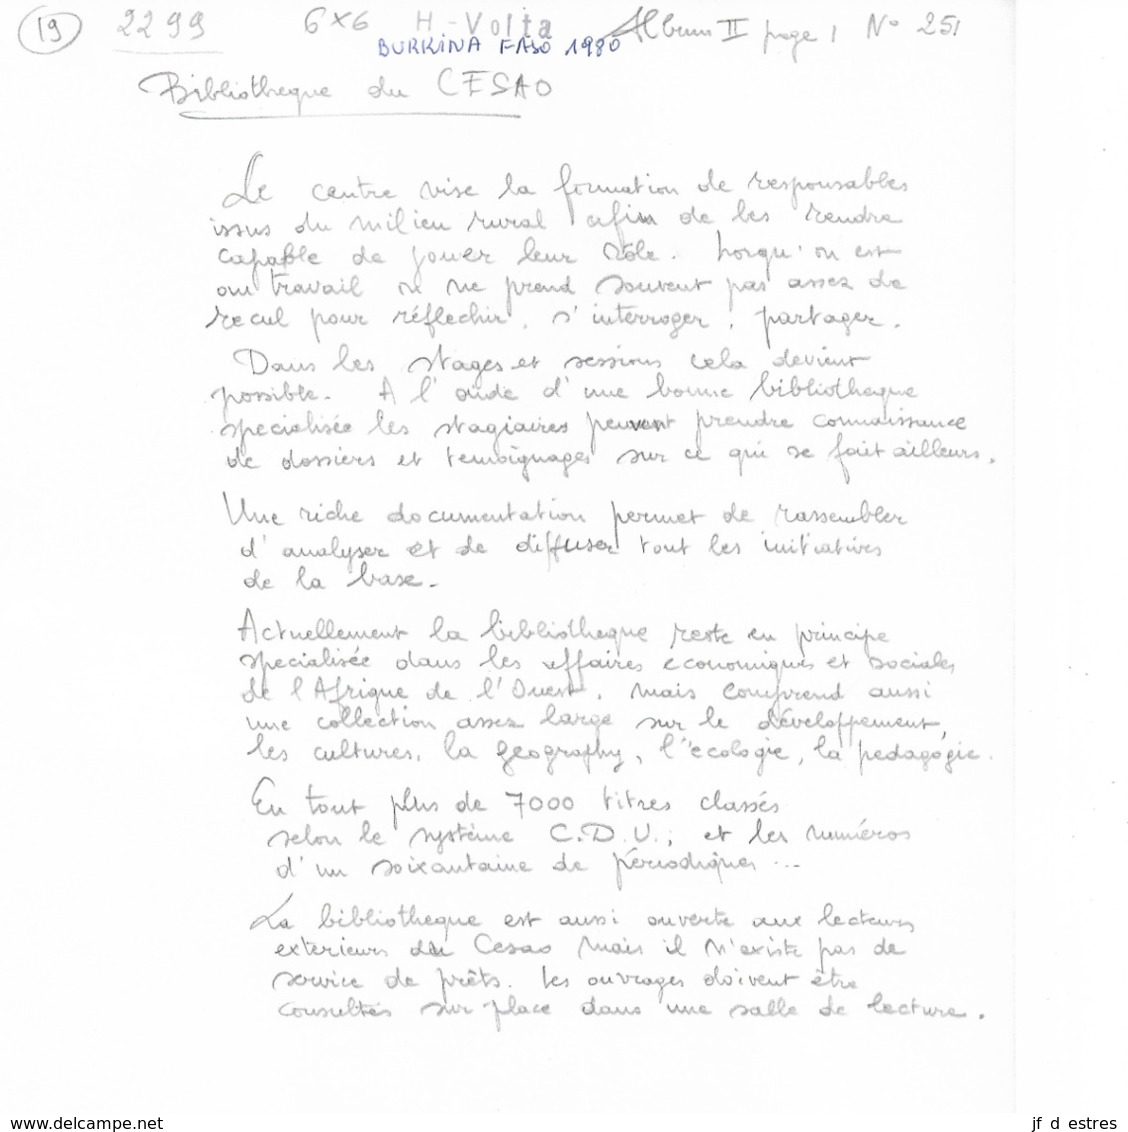 19 2299 6x6 H-Volta Album II page 1 N° 251
BURKINA FASO 1980
Bibliotheque du CESAO
Le centre vise la formation de responsables
issus du milieu rural afin de les rendre
capable de jouer leur rôle. Lorqu'on est
au travail on ne prend souvent pas assez de
recul pour réflechir, s'interroger, partager.
Dans les stages et sessions cela devient
possible. A l'aide d'une bonne bibliotheque
specialisée les stagiaires peuvent prendre connaissance
de dossiers et temoignages sur ce qui se fait ailleurs.
Une riche documentation permet de rassembler
d'analyser et de diffuser tout les initiatives
de la base.
Actuellement la bibliotheque reste en principe
specialisée dans les affaires economiques et sociales
de l'Afrique de l'Ouest, mais comprend aussi
une collection assez large sur le développement,
les cultures, la geography, l'ecologie, la pedagogie.
En tout plus de 7000 titres classés
selon le système C.D.U.; et les numéros
d'un soixantaine de périodiques ...
La bibliotheque est aussi ouverte aux lecteurs
exterieurs du Cesao mais il n'existe pas de
service de prêts. Les ouvrages doivent être
consultés sur place dans une salle de lecture.
www.delcampe.net jf d estres